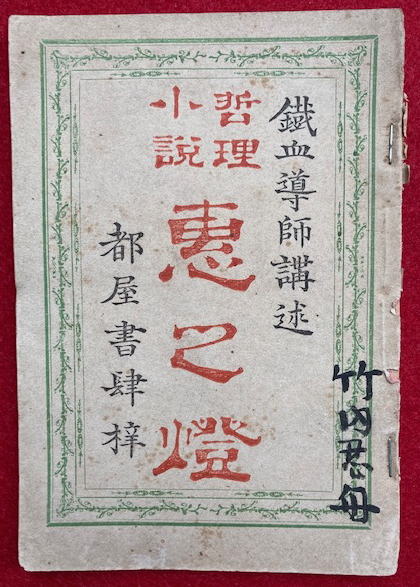 鐵血導師講述
哲理
小説
恵之燈
都屋書肆梓
竹内